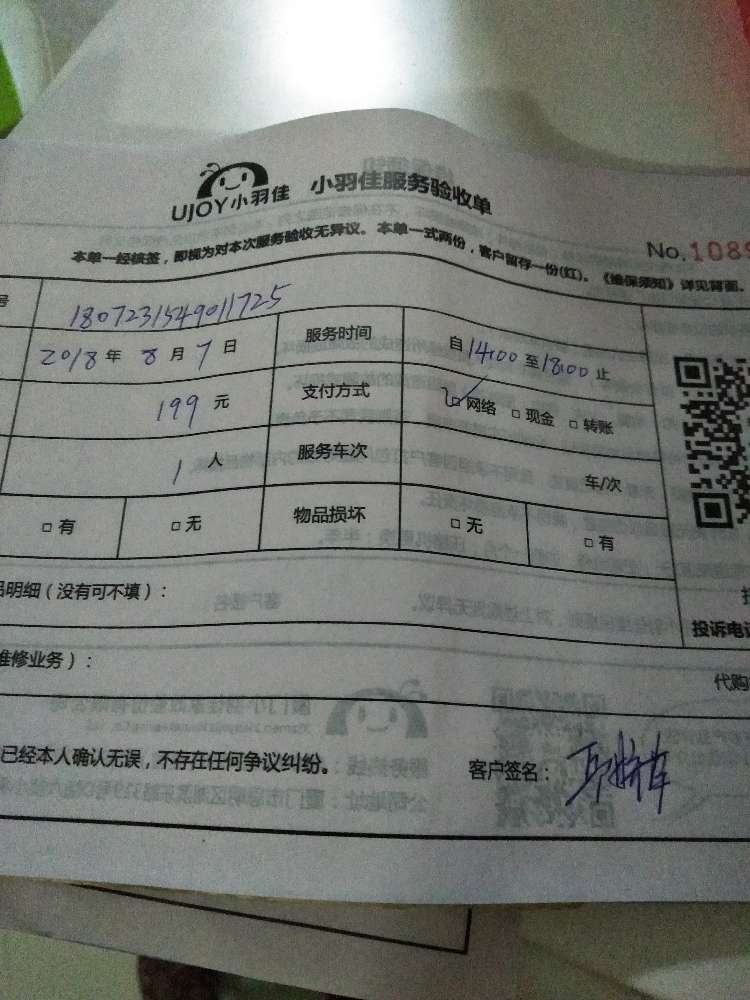 UJOY小羽佳 小羽佳服务验收单
No.1089
本单一经核签，即视为对本次服务验收无异议。本单一式两份，客户留存一份(红)。《维保须知》详见背面。
号 1807231549011725
2018年8月7日 服务时间 自14:00至18:00止
199元 支付方式 ☑网络 □现金 □转账
1人 服务车次 车/次
□有 □无 物品损坏 □无 □有
品明细（没有可不填）：
投诉电话
维修业务）：
代购
已经本人确认无误，不存在任何争议纠纷。 客户签名：